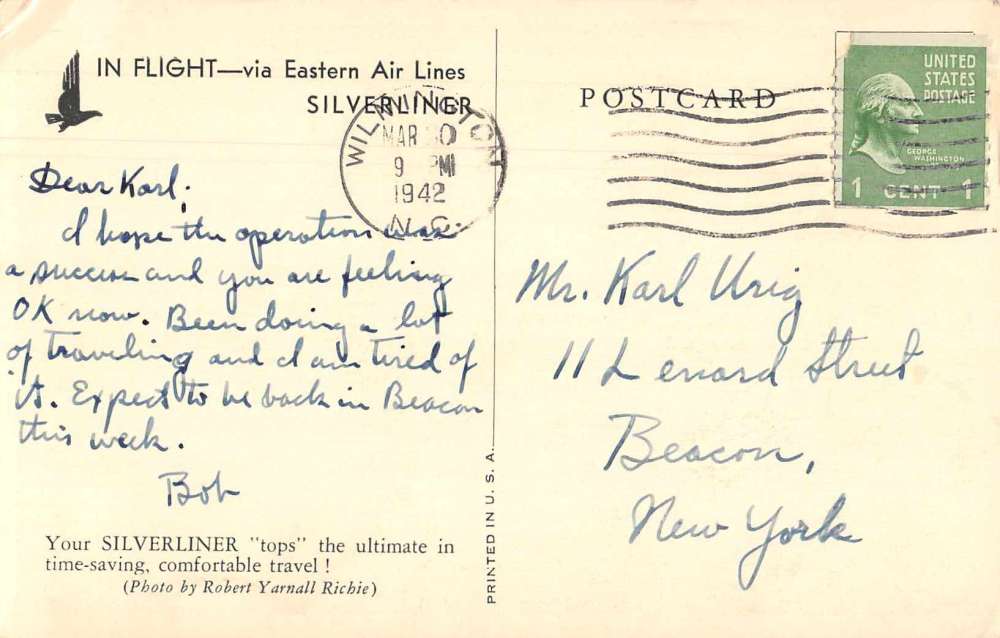 IN FLIGHT—via Eastern Air Lines
SILVERLINER
POSTCARD
WILMINGTON
MAR 30
9 PM
1942
N.C.
UNITED
STATES
POSTAGE
GEORGE
WASHINGTON
1 CENT 1
Dear Karl;
I hope the operation was
a success and you are feeling
OK now. Been doing a lot
of traveling and I am tired of
it. Expect to be back in Beacon
this week.
Bob
Your SILVERLINER "tops" the ultimate in
time-saving, comfortable travel!
(Photo by Robert Yarnall Richie)
PRINTED IN U. S. A.
Mr. Karl Urig
11 Lenard Street
Beacon,
New York